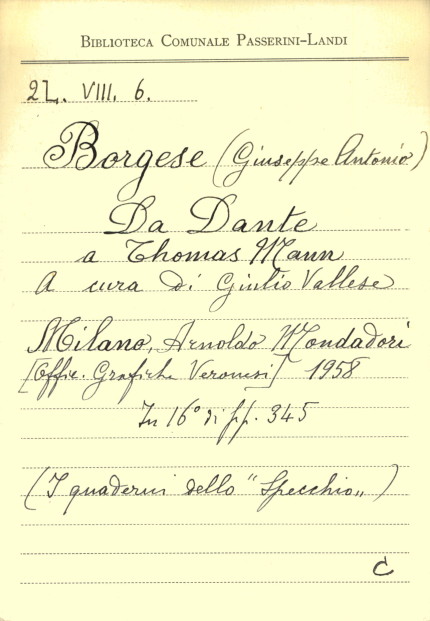 BIBLIOTECA COMUNALE PASSERINI-LANDI
2L. VIII. 6.
Borgese (Giuseppe Antonio)
Da Dante
a Thomas Mann
A cura di Giulio Vallese
Milano, Arnoldo Mondadori
[Offic. Grafiche Veronesi] 1958
In 16° di pp. 345
(I quaderni dello "Specchio„)
C